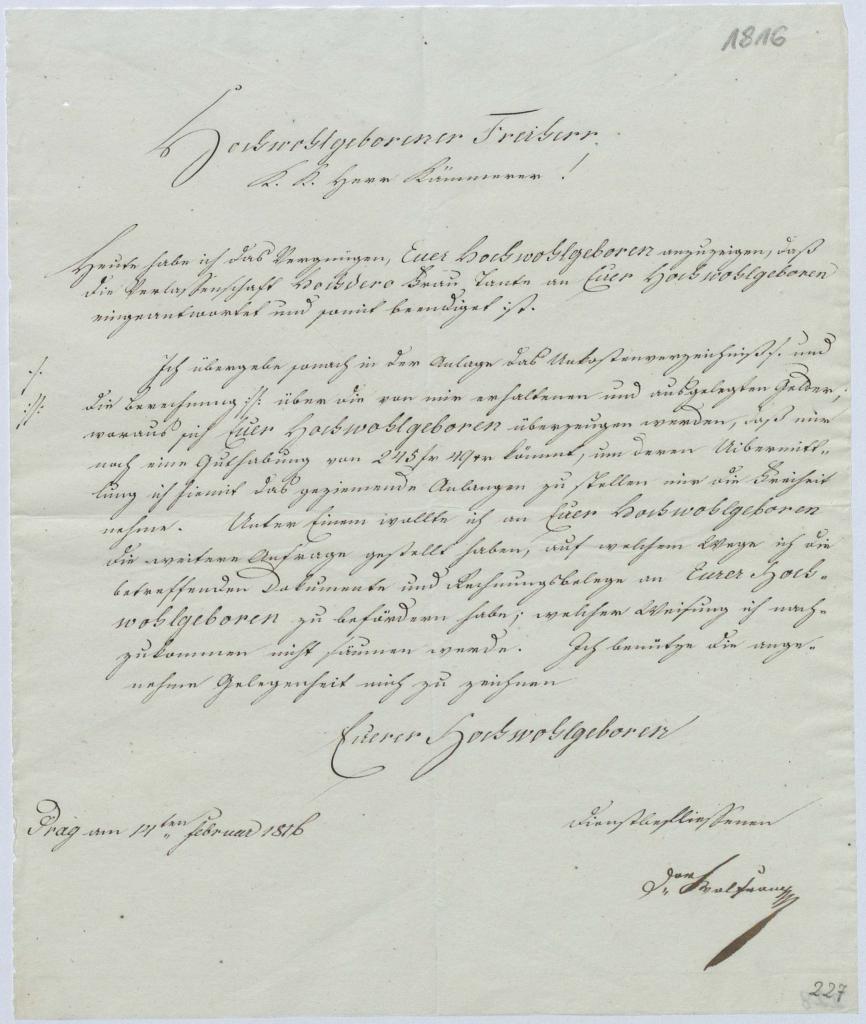 1816
Hochwohlgeborener Freiherr
K. K. Herr Kämmerer!
Heute habe ich das Vergnügen, Euer Hochwohlgeboren anzuzeigen, daß
die Verlassenschaft Hochdero Frau Tante an Euer Hochwohlgeboren
eingeantwortet und somit beendiget ist.
Ich übergebe sonach in der Anlage das Unkostenverzeichniß /. und
·/.
die Berechnung :/: über die von mir erhaltenen und ausgelegten Gelder;
:/:
woraus sich Euer Hochwohlgeboren überzeugen werden, daß mir
noch eine Guthabung von 245 fr 49 xr kömmt, um deren Uibermitt=
lung ich hiemit das geziemende Anlangen zu stellen mir die Freiheit
nehme. Unter Einem wollte ich an Euer Hochwohlgeboren
die weitere Anfrage gestellt haben, auf welchem Wege ich die
betreffenden Dokumente und Rechnungsbelege an Eurer Hoch=
wohlgeboren zu befördern habe; welcher Weisung ich nach=
zukommen nicht säumen werde. Ich benütze die ange=
nehme Gelegenheit mich zu zeichnen
Euerer Hochwohlgeboren
Prag am 14ten Februar 1816
dienstbeflissenen
227